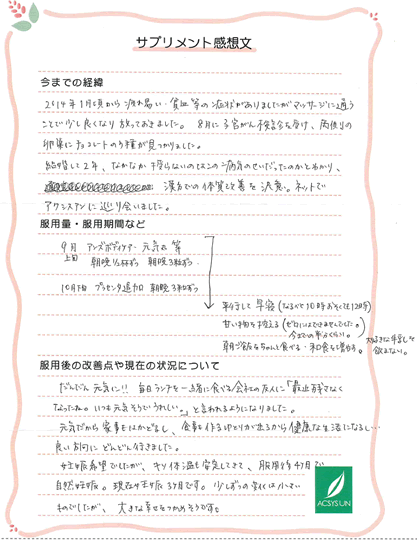 サプリメント感想文
今までの経緯
2014年1月頃から疲れ易い・貧血等の症状がありましたがマッサージに通う
ことで少し良くなり放っておきました。8月に子宮がん検診を受け、両側の
卵巣にチョコレートのう腫が見つかりました。
結婚して2年、なかなか授からないのはこの病気のせいだったのかとわかり、
漢方での体質改善を決意。ネットで
アクシスアンに巡り会いました。
服用量・服用期間など
9月 アンズボディケア・元気 等
上旬 朝晩 朝晩3粒ずつ
10月下旬 プラセンタ追加 朝晩3粒ずつ
平行して早寝(なるべく10時おそくても12時)
甘い物を控える(ゼロにはできませんでした。
今までの半分くらい。)
朝ご飯をちゃんと食べる・和食を
大好きな牛乳を
飲まない。
服用後の改善点や現在の状況について
だんだん元気に!! 毎日ランチを一緒に食べる会社の友人に「最近
なったね。いつも元気そうでうれしい」と言われるようになりました。
元気だから家事もはかどるし、食事も作るゆとりが出るから健康な生活になるし…
良い方向にどんどん行きました。
妊娠希望でしたが、体温も安定してきて、服用約4ヶ月で
自然妊娠。現在妊娠3ヶ月です。少しずつの は小さい
ものでしたが、大きな幸せをつかめそうです。
ACSYSUN